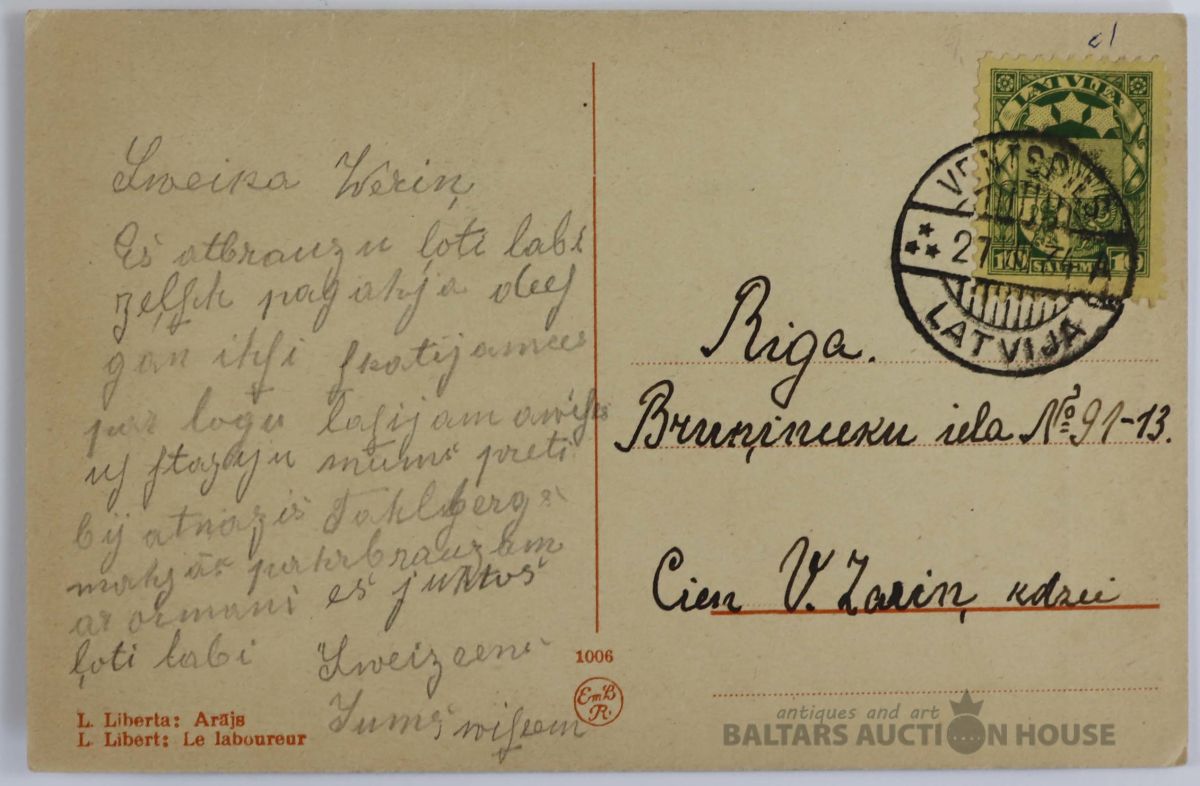 Sweika Weriņ
Es atbrauzu ļoti labi
zeļsch pagahja deef
gan ihsi skatijamees
par logu lasijam awises
us stazyju mums preti
bij atnazis
mahjās pahrbrauzam
ar ormani es juhtos
ļoti labi Sweizeens
Jums wiseem
L. Liberta: Arājs
L. Libert: Le laboureur
1006
EmB
R.
LATVIJA
10 SANTIMU 10
VENTSPILS
27
LATVIJA
Riga.
Bruņineeku iela № 91-13.
Cien V. Zariņ kdzei
antiques and art
BALTARS AUCTION HOUSE